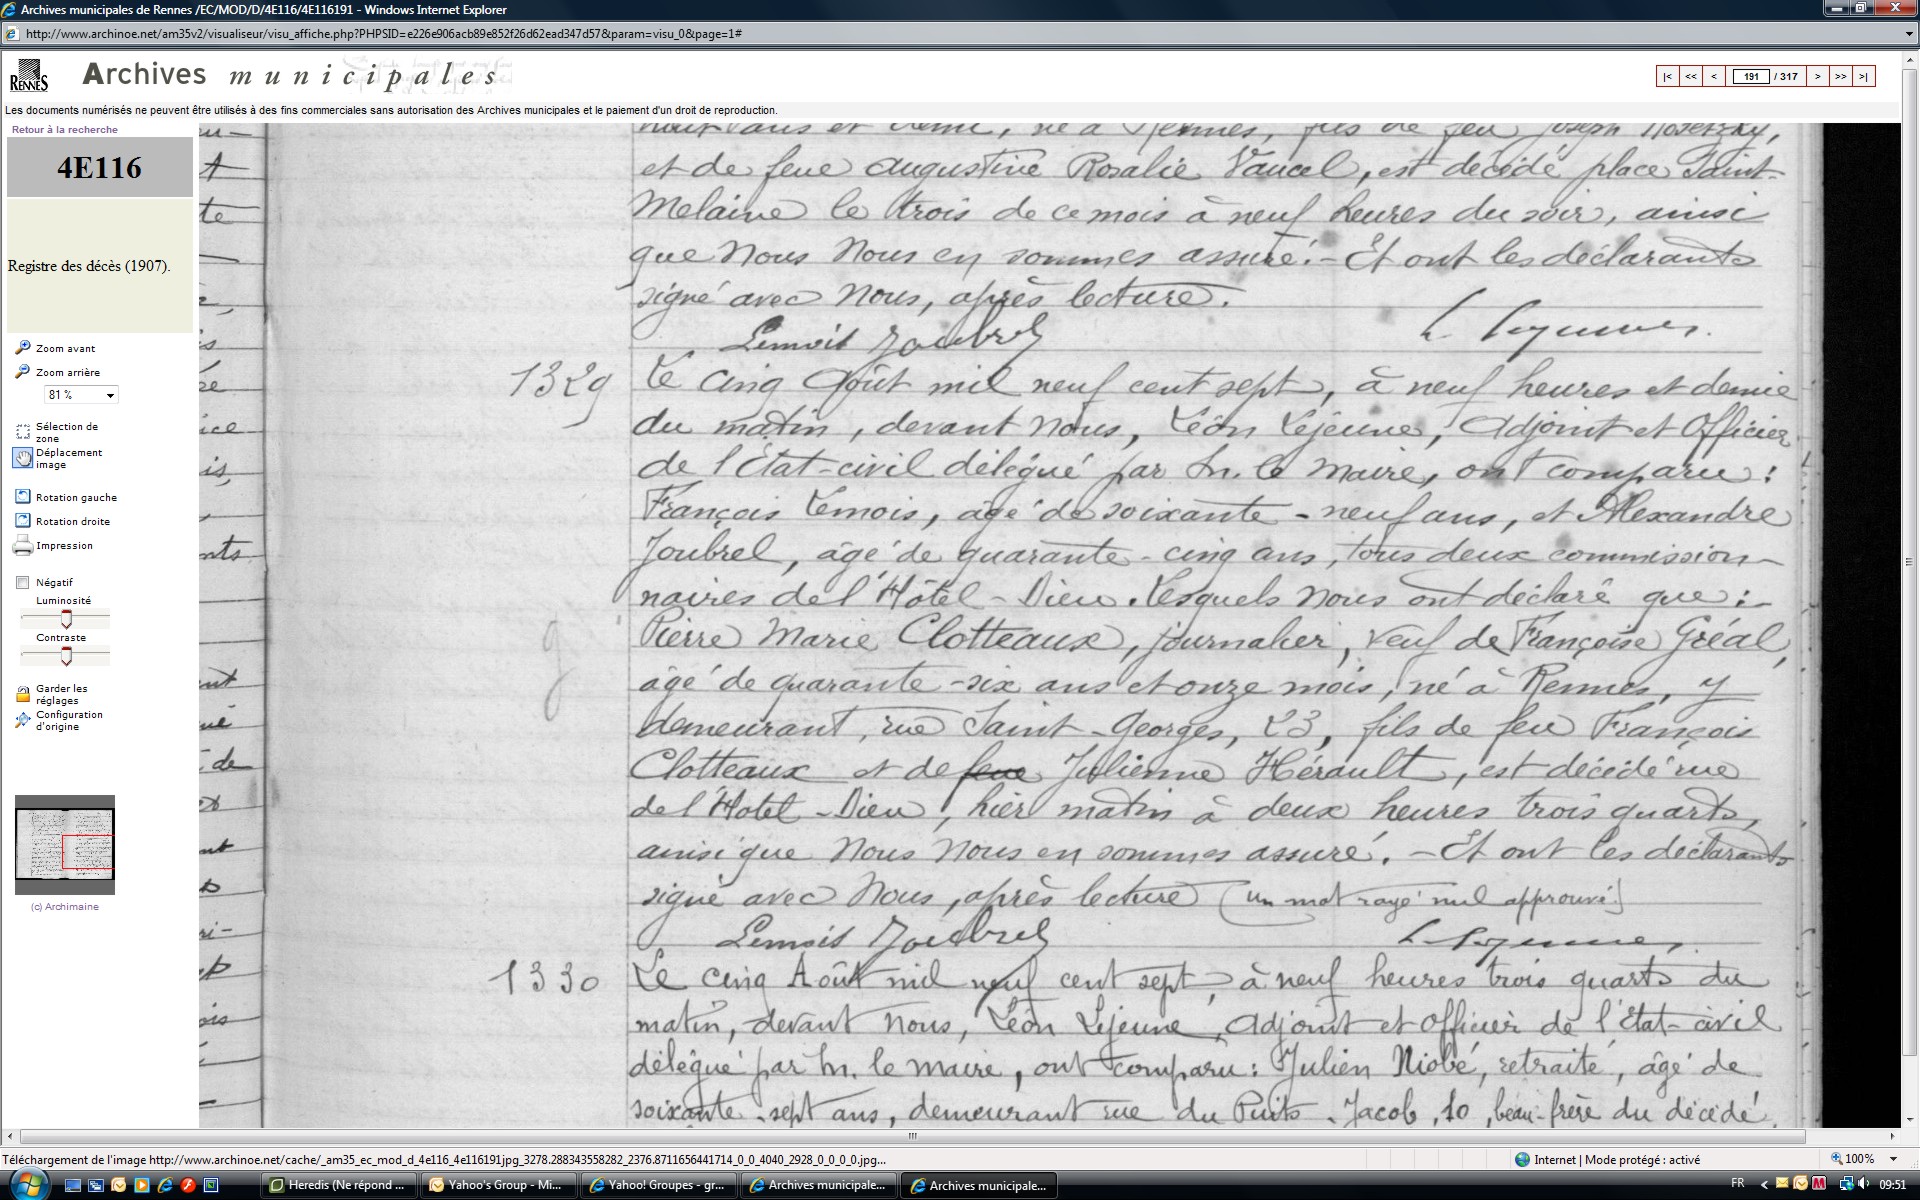 Archives municipales de Rennes /EC/MOD/D/4E116/4E116191 - Windows Internet Explorer
http://www.archinoe.net/am35v2/visualiseur/visu_affiche.php?PHPSID=e226e906acb89e852f26d62ead347d57&param=visu_0&page=1#
RENNES Archives municipales
|< << < 191 / 317 > >> >|
Les documents numérisés ne peuvent être utilisés à des fins commerciales sans autorisation des Archives municipales et le paiement d'un droit de reproduction.
Retour à la recherche
4E116
Registre des décès (1907).
Zoom avant
Zoom arrière
81 %
Sélection de
zone
Déplacement
image
Rotation gauche
Rotation droite
Impression
Négatif
Luminosité
Contraste
Garder les
réglages
Configuration
d'origine
(c) Archimaine
ans et demi, né à Rennes, fils de feu Joseph
et de feue Augustine Rosalie Vaucel, est décédé place Saint-
Melaine le trois de ce mois à neuf heures du soir, ainsi
que Nous Nous en sommes assuré.- Et ont les déclarants
signé avec Nous, après lecture.
Lemois Joubrel L. Lejeune
1329 Le cinq Août mil neuf cent sept, à neuf heures et demie
du matin, devant Nous, Léon Lejeune, Adjoint et Officier
de l'Etat-civil délégué par M. le Maire, ont comparu :
François Lemois, âgé de soixante-neuf ans, et Alexandre
Joubrel, âgé de quarante-cinq ans, tous deux commission-
naires de l'Hôtel-Dieu. Lesquels Nous ont déclaré que :-
Pierre Marie Clotteaux, journalier, veuf de Françoise Gréal,
âgé de quarante-six ans et onze mois, né à Rennes, y
demeurant, rue Saint-Georges, 23, fils de feu François
Clotteaux et de feue Julienne Hérault, est décédé rue
de l'Hotel-Dieu, hier matin à deux heures trois quarts,
ainsi que Nous Nous en sommes assuré. - Et ont les déclarants
signé avec Nous, après lecture (un mot rayé nul approuvé)
Lemois Joubrel L. Lejeune
1330 Le cinq Août mil neuf cent sept, à neuf heures trois quarts du
matin, devant Nous, Léon Lejeune, Adjoint et Officier de l'Etat-civil
délégué par M. le Maire, ont comparu : Julien Niobé, retraité, âgé de
soixante-sept ans, demeurant rue du Puits-Jacob, 10, beau-frère du décédé,
Téléchargement de l'image http://www.archinoe.net/cache/_am35_ec_mod_d_4e116_4e116191jpg_3278.288343558282_2376.8711656441714_0_0_4040_2928_0_0_0_0.jpg...
Internet | Mode protégé : activé
100%
Heredis (Ne répond ...
Yahoo's Group - Mi...
Yahoo! Groupes - gr...
Archives municipale...
Archives municipale...
FR
09:51